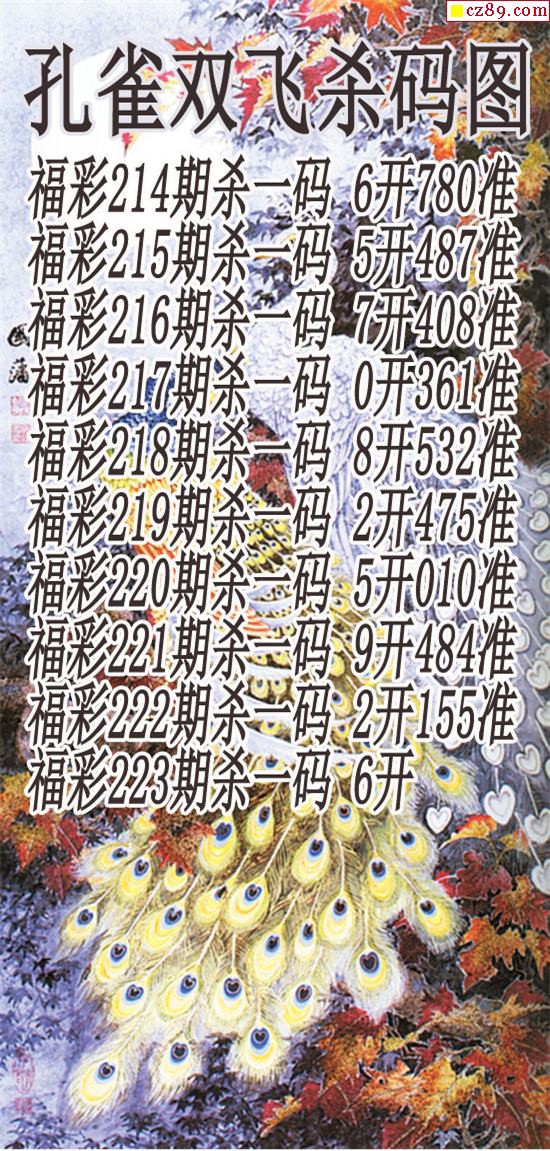 cz89.com
孔雀双飞杀码图
福彩214期杀一码 6开780准
福彩215期杀一码 5开487准
福彩216期杀一码 7开408准
福彩217期杀一码 0开361准
福彩218期杀一码 8开532准
福彩219期杀一码 2开475准
福彩220期杀一码 5开010准
福彩221期杀一码 9开484准
福彩222期杀一码 2开155准
福彩223期杀一码 6开